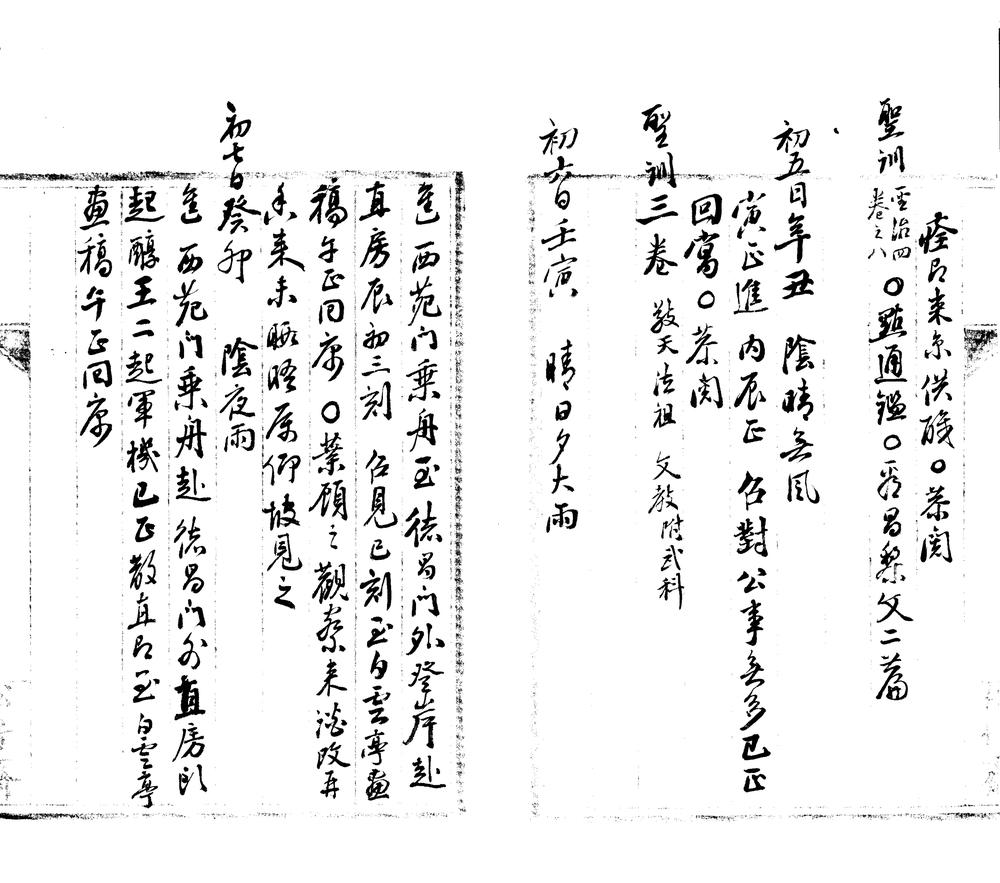 後即来京供職〇茶閱
聖訓雲治四卷之八〇點通鑑〇看昌黎文二篇
初五日辛丑 陰晴無風
寅正進 內辰正 召對公事無多已正
回寓〇茶閱
聖訓三卷 敬天法祖 文教附武科
初六日壬寅 晴日夕大雨
進 西苑門乗舟至德昌門外登岸赴
直房辰初三刻 召見巳刻至白雲亭畫
稿午正回寓〇葉顧之觀察来談改再
来未晤
初七日癸卯 陰夜雨
進 西苑門乗舟赴德昌門外直房頭
起醇王二起軍機已正散直即至白雲亭
畫稿午正回寓